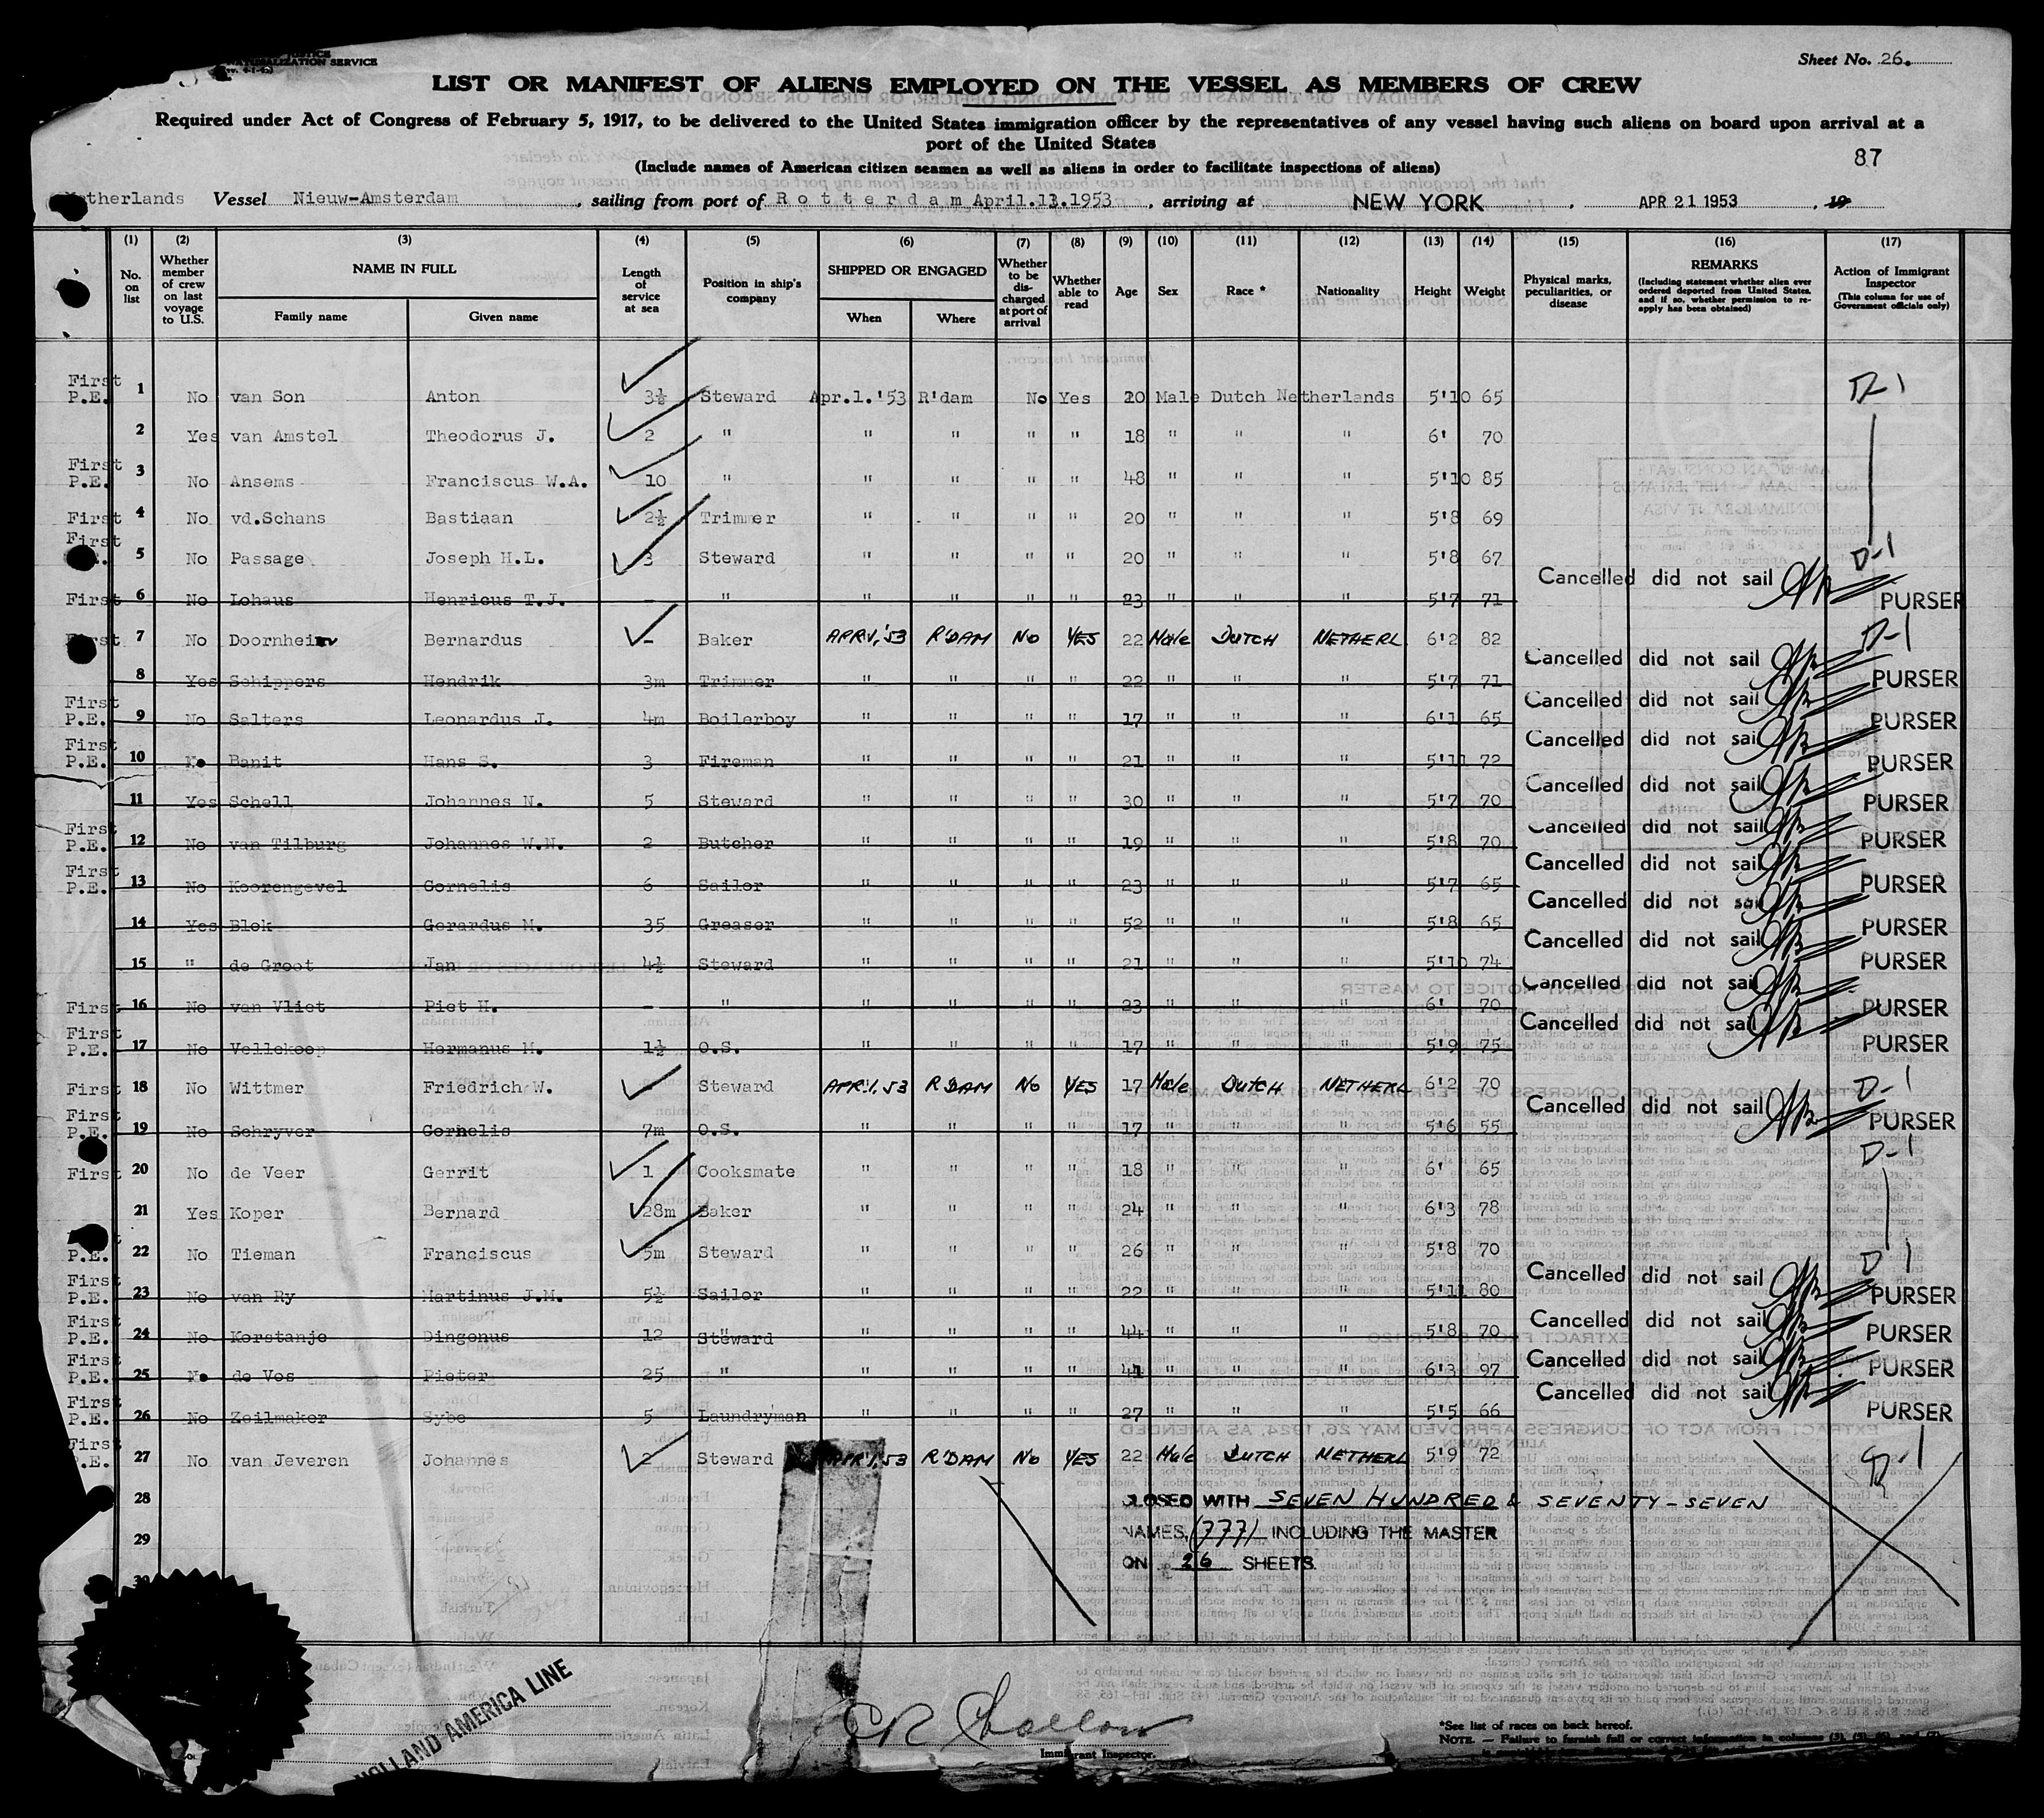 NATURALIZATION SERVICE
Sheet No. 26.
LIST OR MANIFEST OF ALIENS EMPLOYED ON THE VESSEL AS MEMBERS OF CREW
Required under Act of Congress of February 5, 1917, to be delivered to the United States immigration officer by the representatives of any vessel having such aliens on board upon arrival at a
port of the United States
(Include names of American citizen seamen as well as aliens in order to facilitate inspections of aliens)
87
Netherlands Vessel Nieuw-Amsterdam, sailing from port of Rotterdam April.13.1953, arriving at NEW YORK, APR 21 1953, 19
(1) (2) (3) (4) (5) (6) (7) (8) (9) (10) (11) (12) (13) (14) (15) (16) (17)
No. on list
Whether member of crew on last voyage to U.S.
NAME IN FULL
Family name Given name
Length of service at sea
Position in ship's company
SHIPPED OR ENGAGED
When Where
Whether to be discharged at port of arrival
Whether able to read
Age Sex Race * Nationality Height Weight
Physical marks, peculiarities, or disease
REMARKS
(Including statement whether alien ever ordered deported from United States, and if so, whether permission to reapply has been obtained)
Action of Immigrant Inspector
(This column for use of Government officials only)
First P.E. 1 No van Son Anton 3½ Steward Apr.1.'53 R'dam No Yes 20 Male Dutch Netherlands 5'10 65 D-1
2 Yes van Amstel Theodorus J. 2 " " " " " 18 " " " 6' 70
First P.E. 3 No Ansems Franciscus W.A. 10 " " " " " 48 " " " 5'10 85
First 4 No vd.Schans Bastiaan 2½ Trimmer " " " " 20 " " " 5'8 69
First 5 No Passage Joseph H.L. 3 Steward " " " " 20 " " " 5'8 67 D-1
First 6 No Lohaus Henricus T.J. - " " " " " 23 " " " 5'7 71 Cancelled did not sail PURSER
First 7 No Doornhein Bernardus - Baker APR.1,'53 R'DAM No YES 22 Male DUTCH NETHERL 6'2 82 D-1
8 Yes Schippers Hendrik 3m Trimmer " " " " 22 " " " 5'7 71 Cancelled did not sail PURSER
First P.E. 9 No Salters Leonardus J. 4m Boilerboy " " " " 17 " " " 6'1 65 Cancelled did not sail PURSER
First P.E. 10 No Banit Hans S. 3 Fireman " " " " 21 " " " 5'11 72 Cancelled did not sail PURSER
11 Yes Schell Johannes N. 5 Steward " " " " 30 " " " 5'7 70 Cancelled did not sail PURSER
First P.E. 12 No van Tilburg Johannes W.N. 2 Butcher " " " " 19 " " " 5'8 70 Cancelled did not sail PURSER
First P.E. 13 No Koorengevel Cornelis 6 Sailor " " " " 23 " " " 5'7 65 Cancelled did not sail PURSER
14 Yes Blok Gerardus M. 35 Greaser " " " " 52 " " " 5'8 65 Cancelled did not sail PURSER
15 " de Groot Jan 4½ Steward " " " " 21 " " " 5'10 74 Cancelled did not sail PURSER
First 16 No van Vliet Piet H. - " " " " " 23 " " " 6' 70 Cancelled did not sail PURSER
First P.E. 17 No Vellekoop Hermanus M. 1½ O.S. " " " " 17 " " " 5'9 75 Cancelled did not sail PURSER
First 18 No Wittmer Friedrich W. Steward APR.1.53 R'DAM No YES 17 Male DUTCH NETHERL 6'2 70 D-1
First P.E. 19 No Schryver Cornelis 7m O.S. " " " " 17 " " " 5'6 55 Cancelled did not sail PURSER
First 20 No de Veer Gerrit 1 Cooksmate " " " " 18 " " " 6' 65 D-1
21 Yes Koper Bernard 28m Baker " " " " 24 " " " 6'3 78
P.E. 22 No Tieman Franciscus 5m Steward " " " " 26 " " " 5'8 70 D-1
First P.E. 23 No van Ry Martinus J.M. 5½ Sailor " " " " 22 " " " 5'11 80 Cancelled did not sail PURSER
First P.E. 24 No Korstanje Dingenus 12 Steward " " " " 44 " " " 5'8 70 Cancelled did not sail PURSER
First P.E. 25 No de Vos Pieter 25 " " " " " 41 " " " 6'3 97 Cancelled did not sail PURSER
First P.E. 26 No Zeilmaker Sybe 5 Laundryman " " " " 27 " " " 5'5 66 Cancelled did not sail PURSER
First P.E. 27 No van Jeveren Johannes 2 Steward APR.1.53 R'DAM No YES 22 Male DUTCH NETHERL 5'9 72 D-1
28 CLOSED WITH SEVEN HUNDRED & SEVENTY-SEVEN
29 NAMES, (777) INCLUDING THE MASTER
ON 26 SHEETS.
HOLLAND AMERICA LINE
Immigrant Inspector.
*See list of races on back hereof.
NOTE. — Failure to furnish full or correct information in columns (3), (5), (6), and (7)